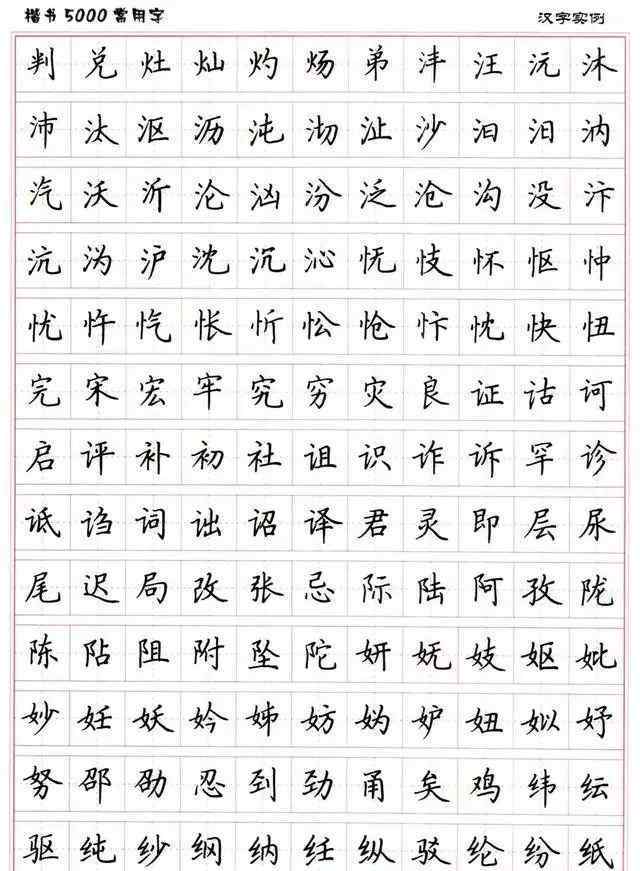 楷书5000常用字 汉字实例
判兑灶灿灼炀弟沣汪沅沐
沛汰沤沥沌沏沚沙汩汨汭
汽沃沂沦汹汾泛沧沟没汴
沆沩沪沈沉沁怃忮怀怄忡
忧忤忾怅忻忪怆忭忱快忸
完宋宏牢究穷灾良证诂诃
启评补初社诅识诈诉罕诊
诋诌词诎诏译君灵即层尿
尾迟局改张忌际陆阿孜陇
陈阽阻附坠陀妍妩妓妪妣
妙妊妖妗姊妨妫妒妞姒妤
努邵劭忍刭劲甬矣鸡纬纭
驱纯纱纲纳纴纵驳纶纷纸